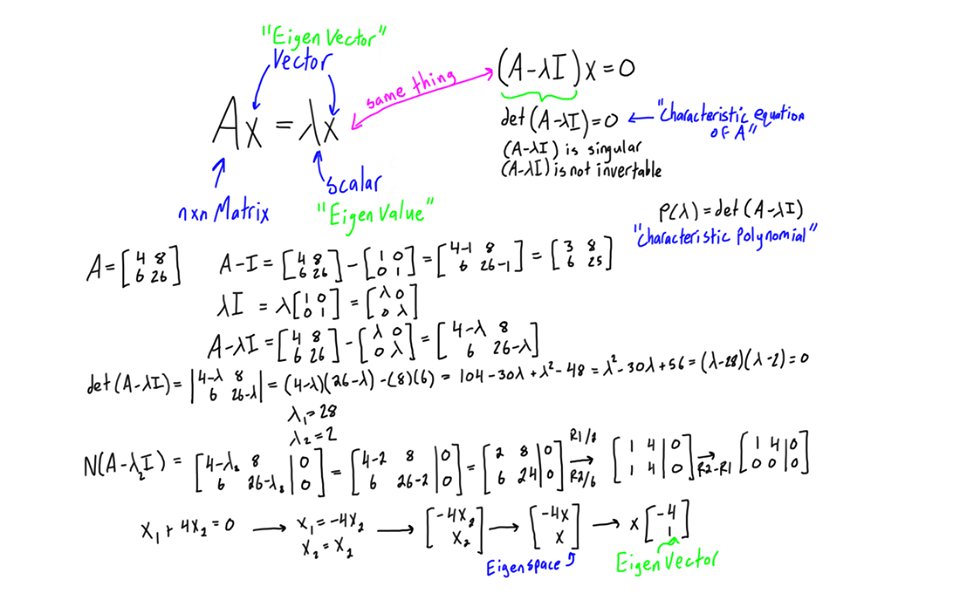 "Eigen Vector"
Vector
Ax = λx
same thing
nxn Matrix
scalar
"Eigen Value"
(A-λI)x=0
det(A-λI)=0 ← "Characteristic equation
OF A"
(A-λI) is singular
(A-λI) is not invertable
P(λ)=det(A-λI)
"Characteristic Polynomial"
A=[4 8; 6 26] A-I = [4 8; 6 26]-[1 0; 0 1]=[4-1 8; 6 26-1]=[3 8; 6 25]
λI = λ[1 0; 0 1]=[λ 0; 0 λ]
A-λI=[4 8; 6 26]-[λ 0; 0 λ]=[4-λ 8; 6 26-λ]
det(A-λI)=|4-λ 8; 6 26-λ|=(4-λ)(26-λ)-(8)(6)=104-30λ+λ²-48=λ²-30λ+56=(λ-28)(λ-2)=0
λ₁=28
λ₂=2
N(A-λ₂I) = [4-λ₂ 8 | 0; 6 26-λ₂ | 0] = [4-2 8 | 0; 6 26-2 | 0] = [2 8 | 0; 6 24 | 0] R1/2 → R2/6 [1 4 | 0; 1 4 | 0] → R2-R1 [1 4 | 0; 0 0 | 0]
x₁+4x₂=0 → x₁=-4x₂ → [-4x₂; x₂] → [-4x; x] → x[-4; 1]
x₂=x₂
Eigenspace
Eigen Vector